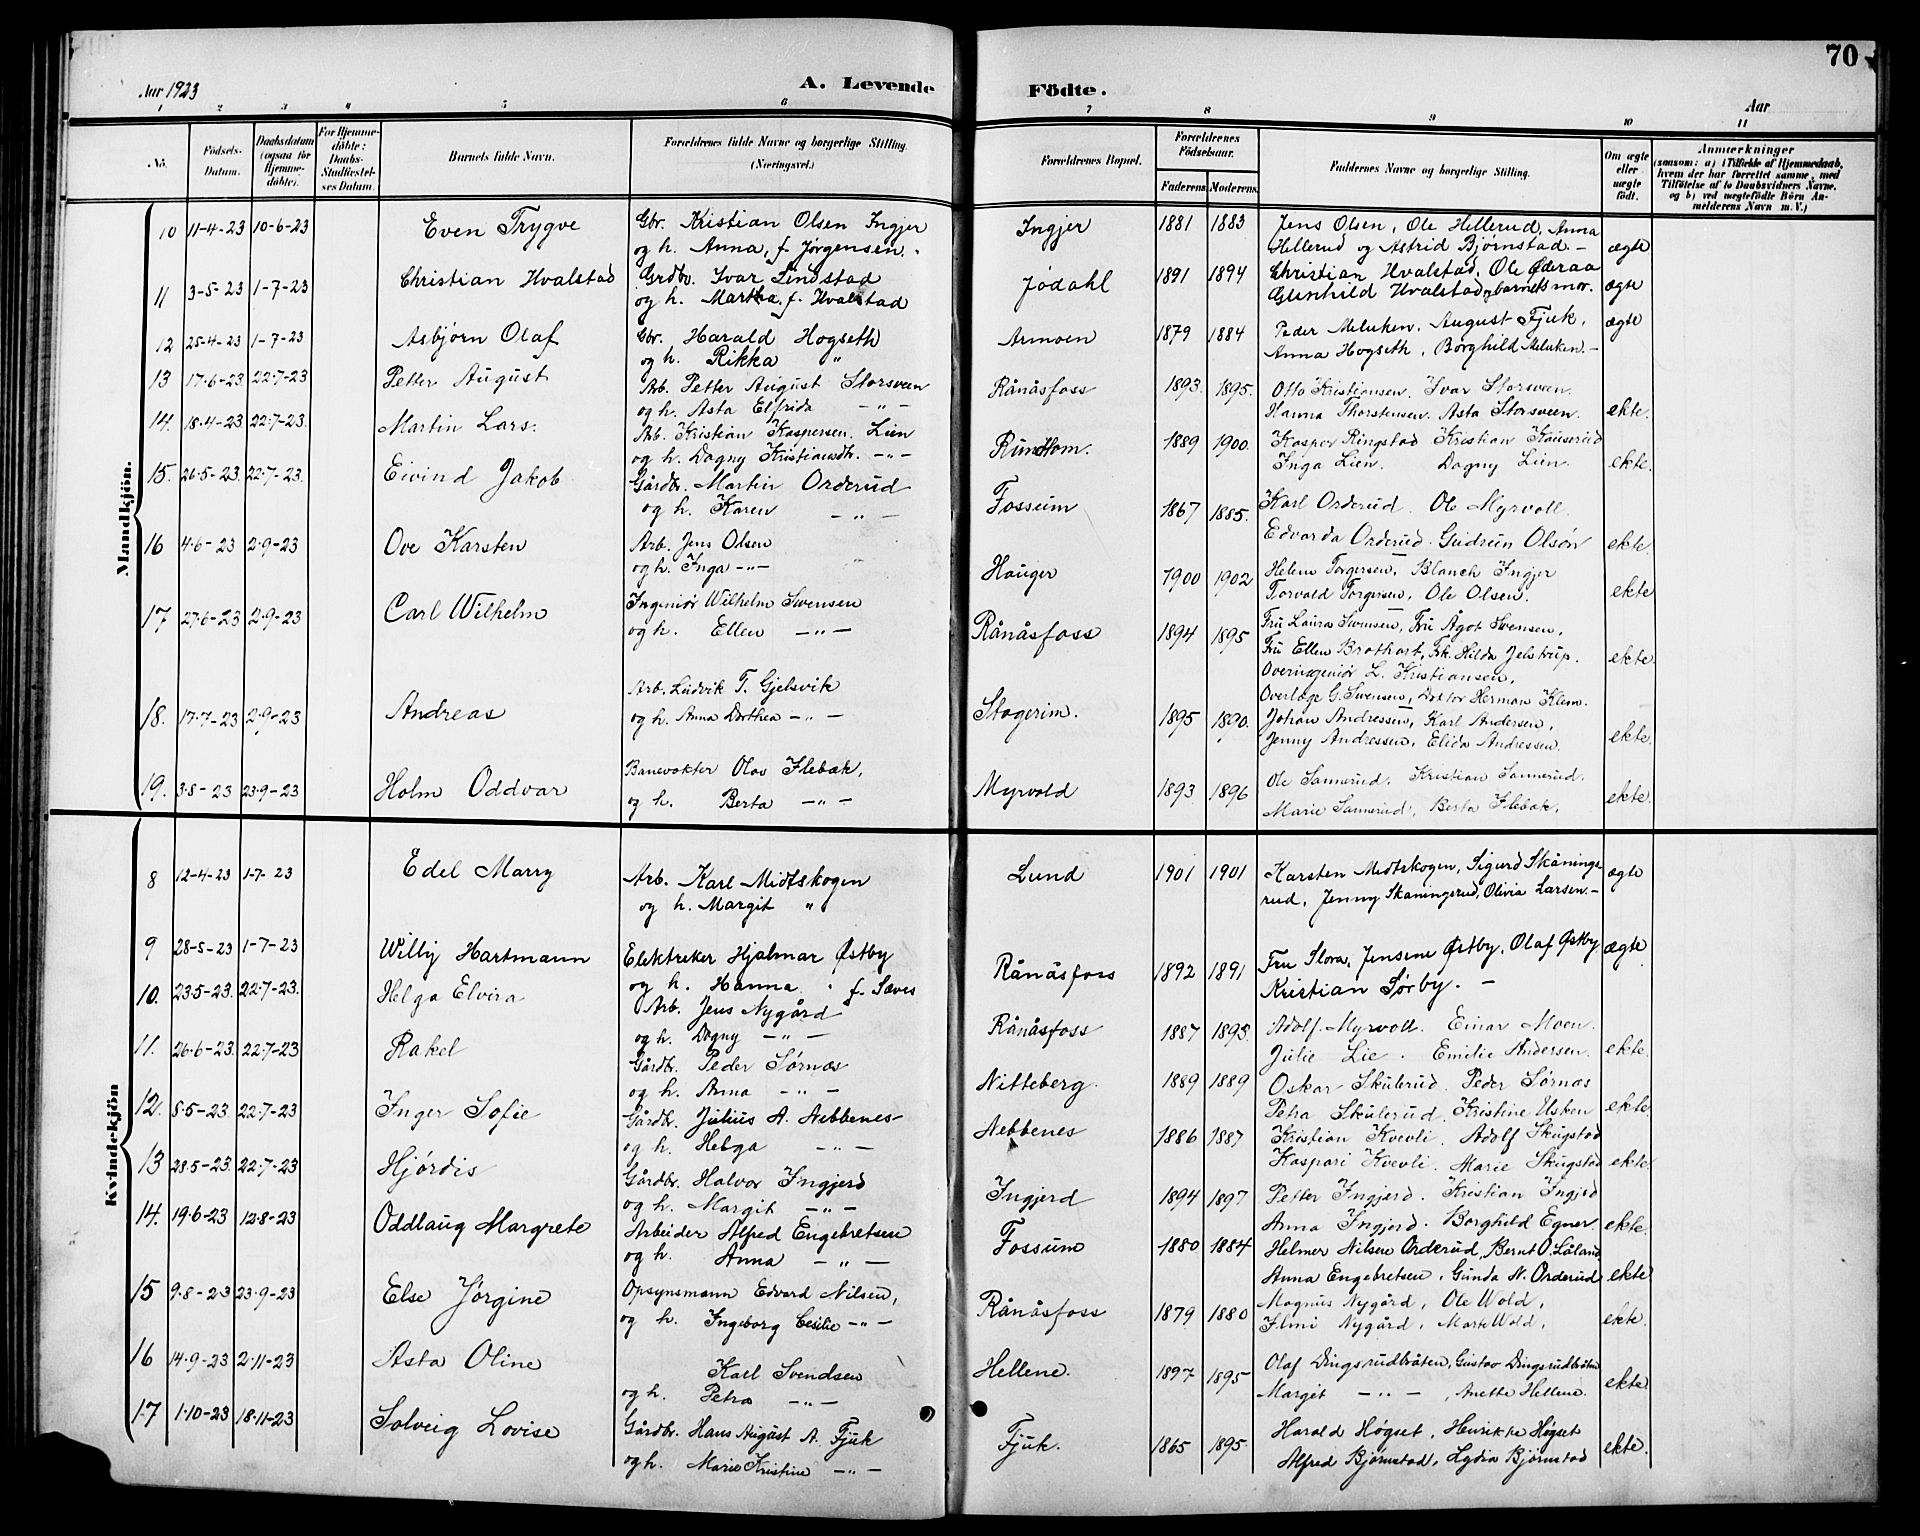 70
Aar 1923
A. Levende Födte.
Aar
1 2 3 4 5 6 7 8 9 10 11
No.
Födsels-Datum.
Daabsdatum (ogsaa for Hjemmedöbte).
For Hjemmedöbte: Daabs-Stadfæstelses Datum.
Barnets fulde Navn.
Forældrenes fulde Navne og borgerlige Stilling. (Næringsvei.)
Forældrenes Bopæl.
Forældrenes Födselsaar.
Faderens. Moderens.
Faddernes Navne og borgerlige Stilling.
Om ægte eller uægte födt.
Anmærkninger
(saasom: a) i Tilfælde af Hjemmedaab, hvem der har forrettet samme, med Tilföielse af to Daabsvidners Navne, og b) ved uægtefödte Börn Anmelderens Navn m. V.)
Mandkjön.
10 11-4-23 10-6-23 Even Trygve Gbr. Kristian Olsen Ingjer Ingjer 1881 1883 Jens Olsen, Ole Hellerud, Anna
og h. Anna, f. Jørgensen. Hellerud og Astrid Bjørnstad.- ægte
11 3-5-23 1-7-23 Christian Hvalstad Grdbr. Ivar Lindstad Jødahl 1891 1894 Christian Hvalstad, Ole Øderaa
og h. Martha, f. Hvalstad Gunhild Hvalstad, barnets mor. ægte
12 25-4-23 1-7-23 Asbjørn Olaf Gbr. Harald Hogseth Armoen 1879 1884 Peder Meluken, August Fjuk, ægte
og h. Rikka " Anna Hogseth, Borghild Meluken.-
13 17-6-23 22-7-23 Petter August Arb. Petter August Storsveen Rånåsfoss 1893. 1895. Otto Kristiansen. Ivar Storsveen.
og h. Asta Elfrida -"- Hanna Thorstensen. Asta Storsveen. ekte.
14. 18-4-23 22-7-23. Martin Lars. Arb. Kristian Kaspersen Lien 1889 1900. Kasper Ringstad Kristian Kauserud
og h. Dagny Kristiansdt. -"- Inga Lien. Dagny Lien. ekte.
15. 26-5-23. 22-7-23. Eivind Jakob Gårdbr. Martin Orderud Fossum 1867 1885. Karl Orderud. Ole Myrvoll.
og h. Karen -"- Edvarda Orderud. Gudrun Olsøn ekte
16 4-6-23 2-9-23 Ove Karsten Arb. Jens Olsen Hauger 1900 1902 Helene Torgersen, Blanch Ingjer
og h. Inga -"- Torvald Torgersen, Ole Olsen. ekte
17 27-6-23 2-9-23 Carl Wilhelm Ingeniør Wilhelm Svensen Rånåsfoss 1894 1895 Fru Laura Svensen, Fru Ågot Svensen,
og h. Ellen -"- Fru Ellen Brothart, Frk. Hilda Jelstrup. ekte.
Overingeniør L. Kristiansen,
Overlæge G. Svensen, Doktor Herman Klem.
18. 17-7-23 2-9-23 Andreas Arb. Ludvik T. Gjelsvik Stogerim. 1895 1890. Johan Andressen, Karl Andersen,
og h. Anna Dorthea -"- Jenny Andressen, Elida Andressen. ekte.
19. 3-8-23 23-9-23 Holm Oddvar Banevokter Olav Flebæk, Myrvold 1893 1896 Ole Sannerud. Kristian Sannerud.
og h. Berta -"- Marie Sannerud, Berta Flebæk, ekte.
Kvindekjön
8 12-4-23 1-7-23 Edel Marry Arb. Karl Midtskogen Lund 1901 1901 Karsten Midtskogen, Sigurd Skånings- ægte
og h. Margit " rud, Jenny Skaningsrud, Olivia Larsen.-
9 28-5-23 1-7-23 Willy Hartmann Elektreker Hjalmar Østby Rånåsfoss 1892 1891 Fru Slora, Jensine Østby, Olaf Østby ægte
og h. Hanna " f. Sæves Kristian Sørby. -
10. 23-5-23. 22-7-23. Helga Elvira Arb. Jens Nygård Rånåsfoss 1887 1893. Adolf Myrvoll. Einar Moen.
og h. Dagny -"- Julie Lie. Emilie Andersen. ekte.
11. 26-6-23. 22-7-23 Rakel Gårdbr. Peder Sørnæs Nitteberg. 1889 1889 Oskar Skulerud. Peder Sørnæs
og h. Anna -"- Petra Skulerud. Kristine Usken ekte.
12. 5-5-23. 22-7-23 Inger Sofie Gårdbr. Julius A. Nebbenes Nebbenes 1886 1887 Kristian Kvevli. Adolf Skugstad
og h. Helga -"- Kaspari Kvevli. Marie Skugstad ekte.
13 28-5-23. 22-7-23 Hjørdis Gårdbr. Halvor Ingjerd Ingjerd 1894 1897 Petter Ingjerd. Kristian Ingjerd
og h. Margit -"- Anna Ingjerd. Borghild Egner. ekte.
14. 19-6-23 12-8-23 Oddlaug Margrete Arbeider Alfred Engebretsen Fossum 1880 1884 Helmer Nilsen Orderud, Bernt O. Låland
og h. Anna -"- Anna Engebretsen, Gunda N. Orderud ekte
15 9-8-23 23-9-23 Else Jørgine Opsynsmann Edvard Nilsen, Rånåsfoss 1879 1880 Magnus Nygård, Ole Wold,
og h. Ingeborg Cesilie -"- Nygård, Marte Wold, ekte.
16 14-9-23 2-11-23 Asta Oline Karl Svendsen Hellene. 1897 1895 Olaf Dingsrudbråten, Gustav Dingsrudbråten
og h. Petra -"- Margit -"-, Anette Hellene. ekte.
17 1-10-23 18-11-23 Solveig Lovise Gårdbr. Hans August A. Fjuk Fjuk. 1865 1895. Harald Høgset, Henrikke Høgset
og h. Marie Kristine -"- Alfred Bjørnstad, Lydia Bjørnstad ekte.